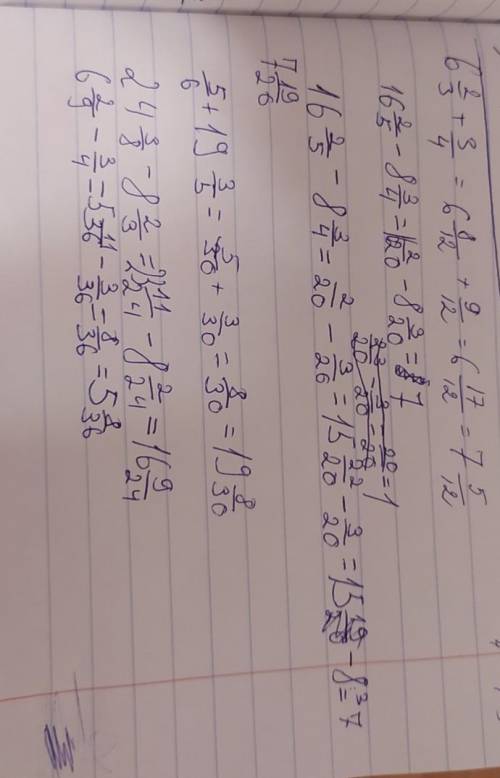 6 2/3 + 3/4 = 6 8/12 + 9/12 = 6 17/12 = 7 5/12
16 2/5 - 8 3/4 = 2/20 - 8 3/20 = 7
22/20 - 3/20 = 20/20 = 1
16 2/5 - 8 3/4 = 2/20 - 3/20 = 15 22/20 - 3/20 = 15 19/20 - 8 = 7
7 19/26
5/6 + 19 3/5 = 5/30 + 3/30 = 8/30 = 19 8/30
24 3/8 - 8 2/3 = 23 11/24 - 8 2/24 = 16 9/24
6 2/9 - 3/4 = 5 11/36 - 3/36 = 8/36 = 5 8/36